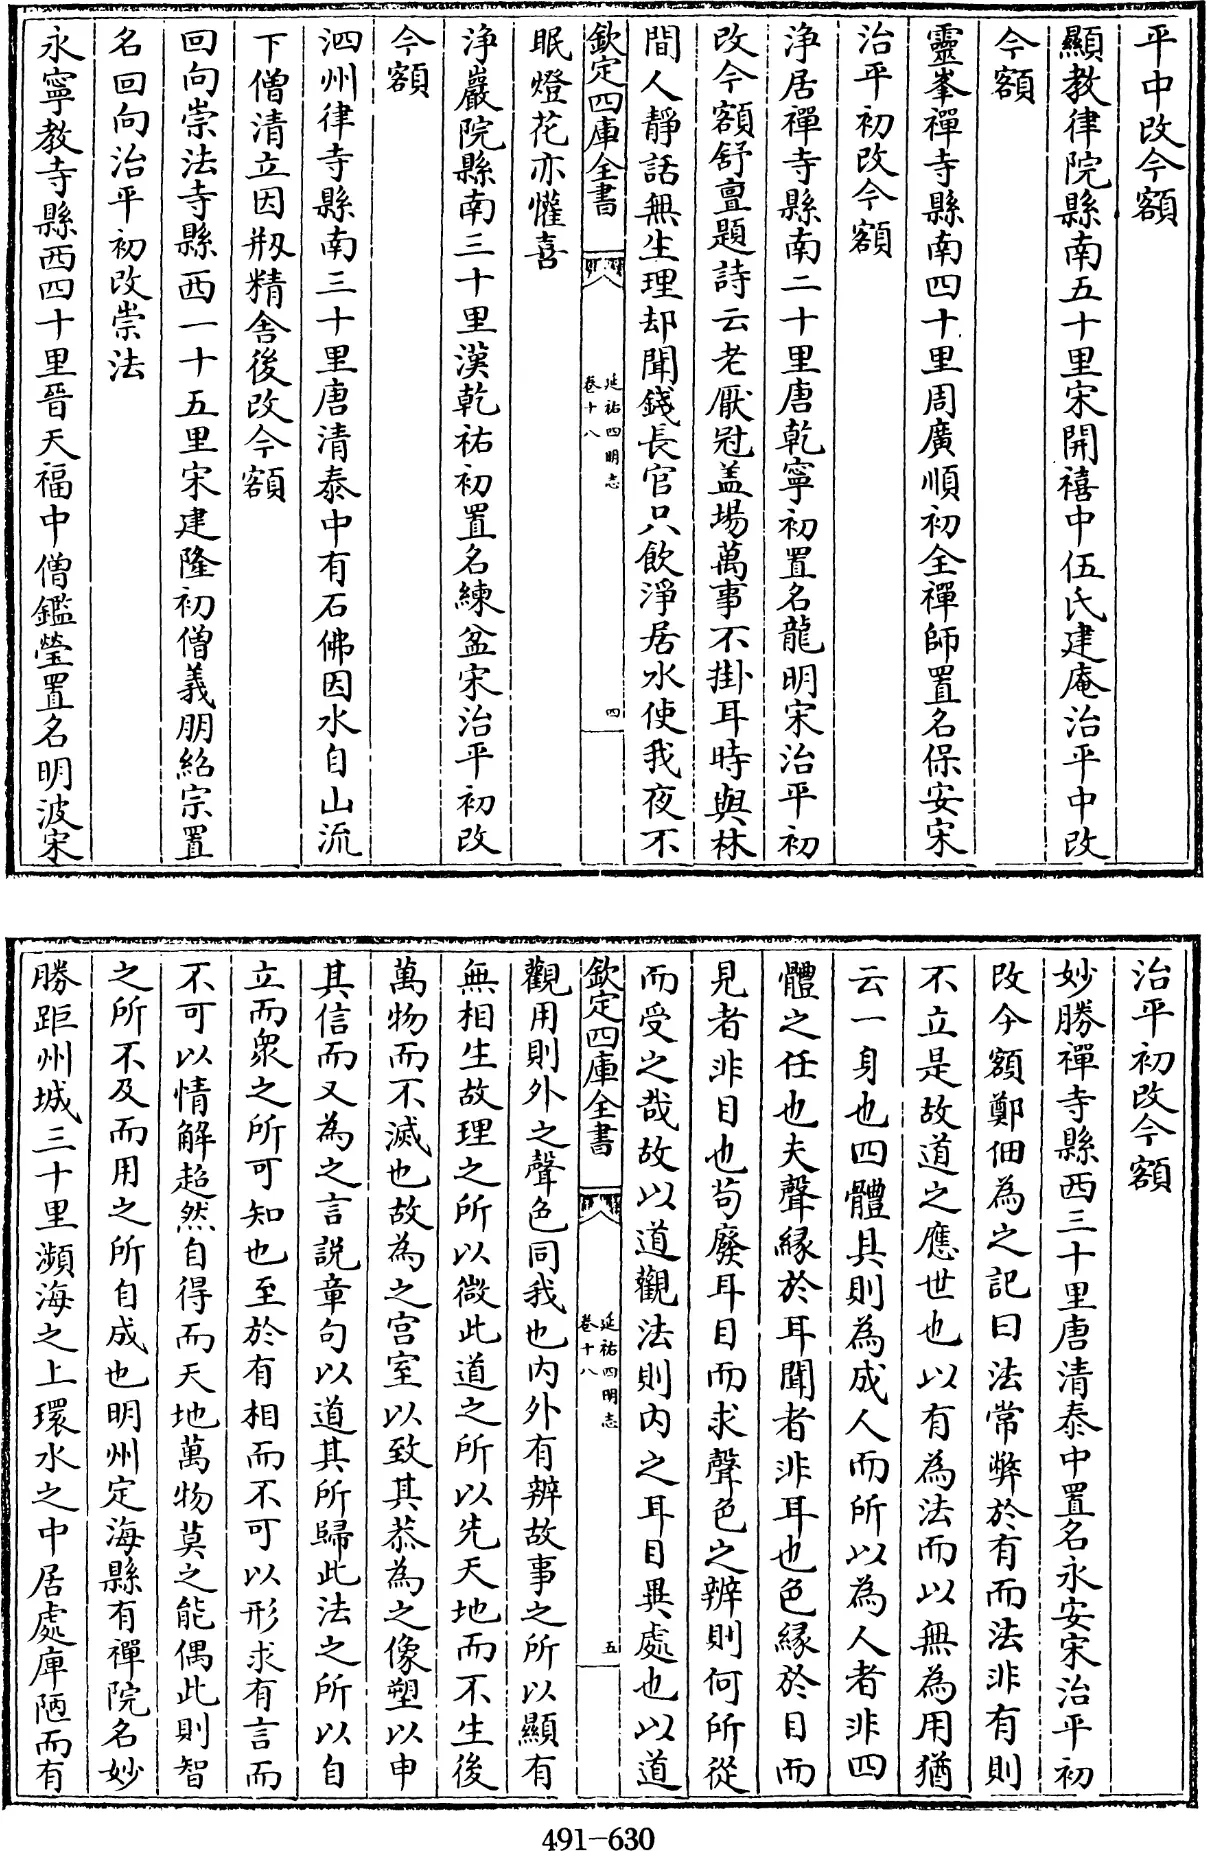 平中改今額
顯教律院縣南五十里宋開禧中伍氏建庵治平中改
今額
靈峯禪寺縣南四十里周廣順初全禪師置名保安宋
治平初改今額
淨居禪寺縣南二十里唐乾寧初置名龍明宋治平初
改今額舒亶題詩云老厭冠盖場萬事不掛耳時與林
間人靜話無生理却聞錢長官只飲淨居水使我夜不
欽定四庫全書
延祐四明志
卷十八
四
眠燈花亦懽喜
淨巖院縣南三十里漢乾祐初置名練盆宋治平初改
今額
泗州律寺縣南三十里唐清泰中有石佛因水自山流
下僧清立因剏精舍後改今額
回向崇法寺縣西一十五里宋建隆初僧義朋紹宗置
名回向治平初改崇法
永寧教寺縣西四十里晉天福中僧鑑瑩置名明波宋
治平初改今額
妙勝禪寺縣西三十里唐清泰中置名永安宋治平初
改今額鄭佃為之記曰法常弊於有而法非有則
不立是故道之應世也以有為法而以無為用猶
云一身也四體具則為成人而所以為人者非四
體之任也夫聲緣於耳聞者非耳也色緣於目而
見者非目也苟廢耳目而求聲色之辨則何所從
而受之哉故以道觀法則内之耳目異處也以道
欽定四庫全書
延祐四明志
卷十八
五
觀用則外之聲色同我也内外有辨故事之所以顯有
無相生故理之所以微此道之所以先天地而不生後
萬物而不滅也故為之宫室以致其恭為之像塑以申
其信而又為之言説章句以道其所歸此法之所以自
立而衆之所可知也至於有相而不可以形求有言而
不可以情解超然自得而天地萬物莫之能偶此則智
之所不及而用之所自成也明州定海縣有禪院名妙
勝距州城三十里瀕海之上環水之中居處庫陋而有
491-630